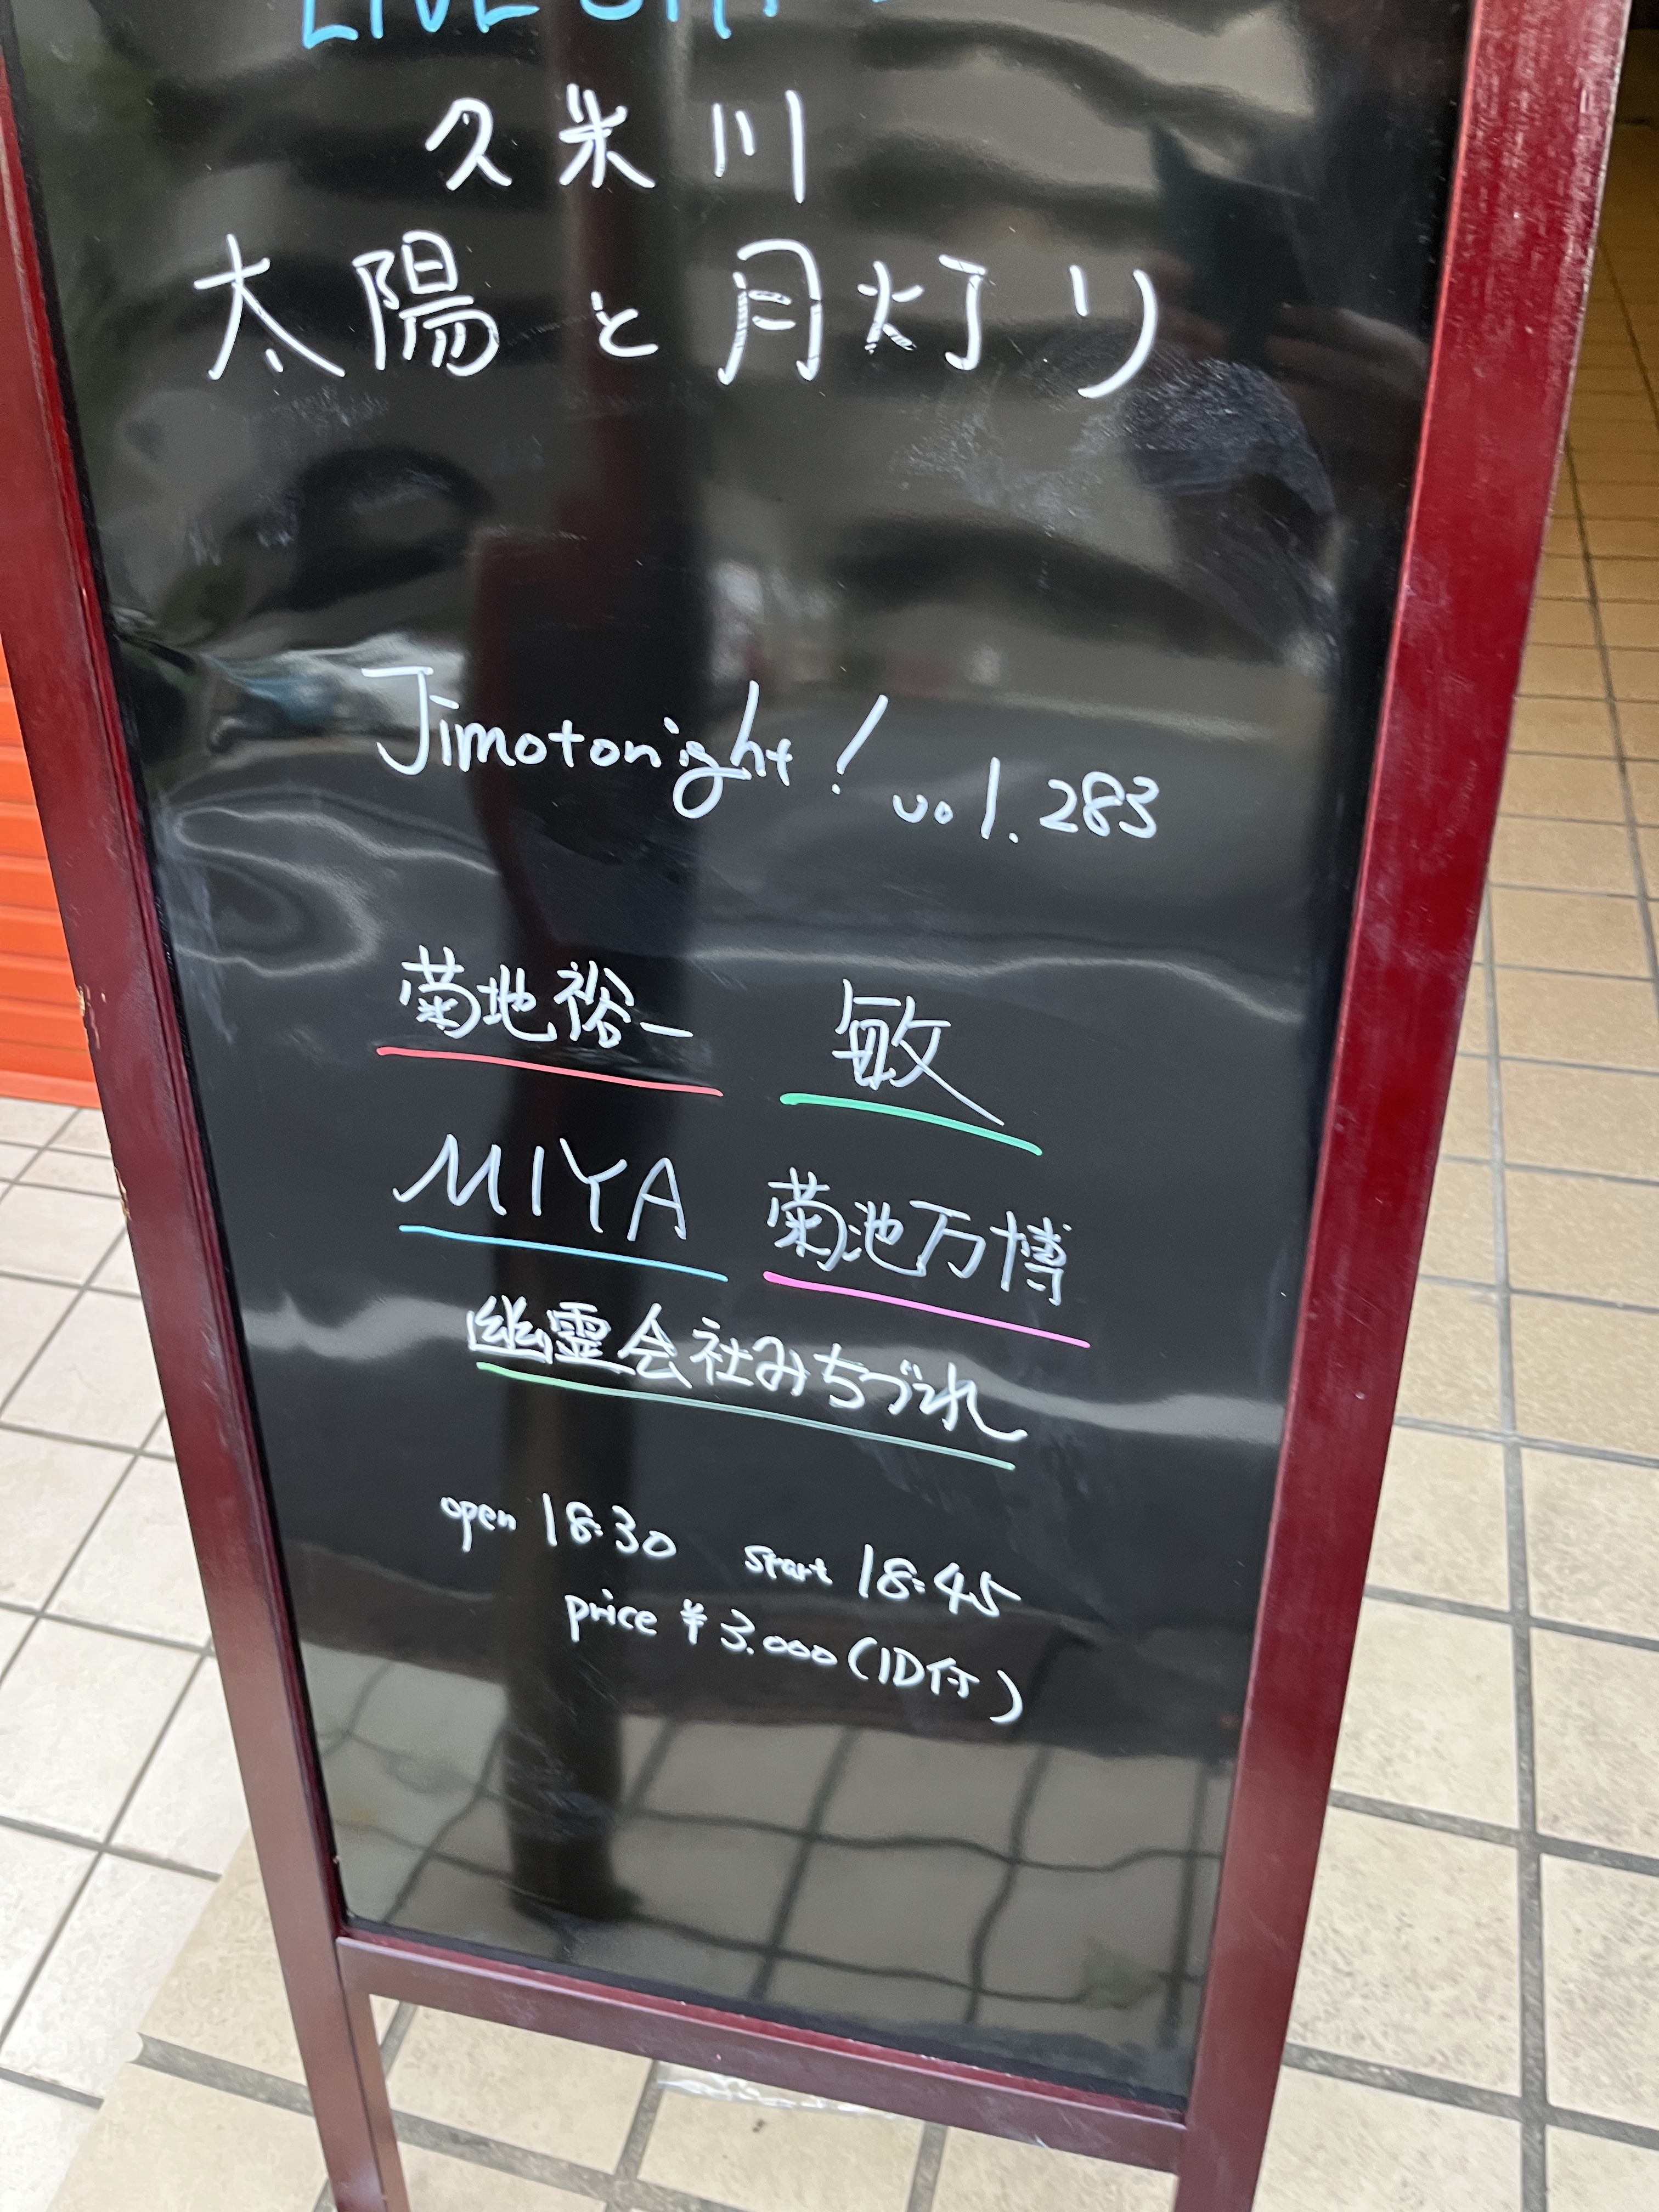 LIVE
久米川
太陽と月灯り
Jimotonight! vol.283
菊地裕一 敏
MIYA 菊池万博
幽霊会社みちづれ
open 18:30 start 18:45
price ¥3.000(1D付)